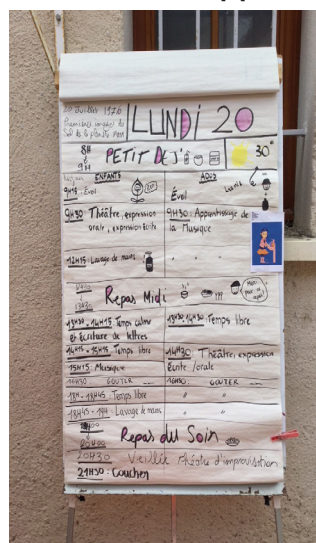 20 Juillet 1976
Premières images du
Sol de la planète mars
LUNDI 20
8H
à
9H
PETIT DEJ'
30°
ENFANTS
ADOS
9H15 : Éveil
Éveil
9H30 : Théâtre, expression
orale, expression écrite
9H30 : Apprentissage de
la Musique
12H15 : Lavage de mains
" "
13H30
Repas Midi
13H30 - 14H15 Temps calme
et écriture de lettres
13H30 - 14H30 Temps libre
14H15 - 15H15 Temps libre
14H30 : Théâtre, expression
écrite /orale
15H15 Musique
16H30 GOUTER
16H30 : GOUTER
18H - 18H45 Temps libre
"
18H45 - 19H : Lavage de mains
"
20H00
Repas du Soir
20H30 Veillée théâtre d'improvisation
21H30 : Coucher